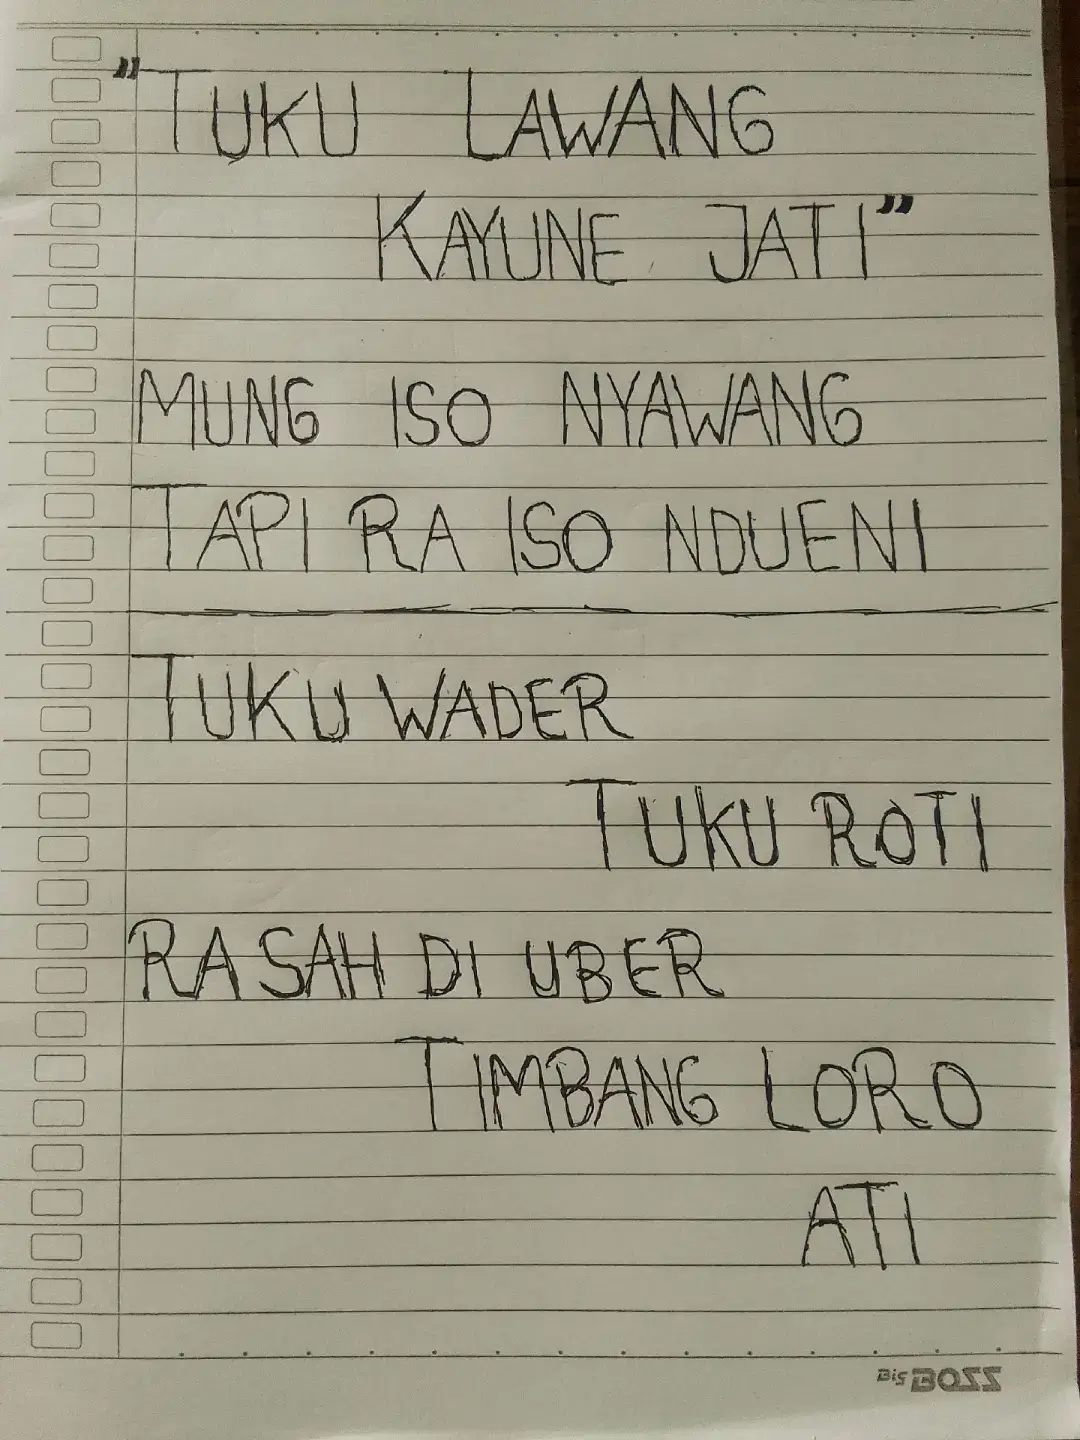 "TUKU LAWANG
KAYUNE JATI"
MUNG ISO NYAWANG
TAPI RA ISO NDUENI
TUKU WADER
TUKU ROTI
RA SAH DI UBER
TIMBANG LORO
ATI
Big BOSS